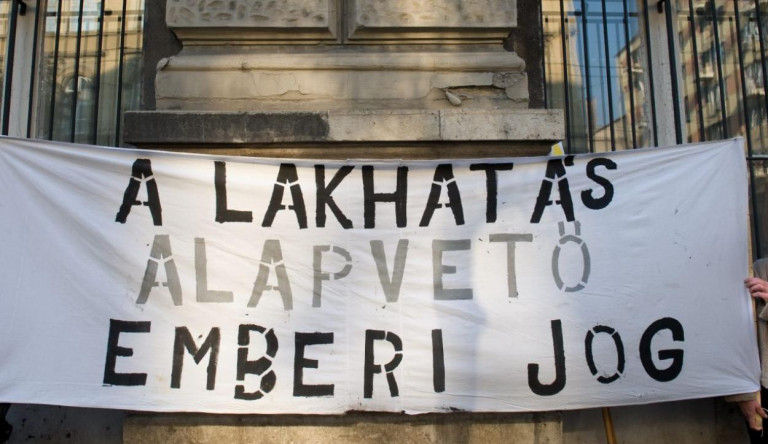 A LAKHATÁS
ALAPVETŐ
EMBERI JOG